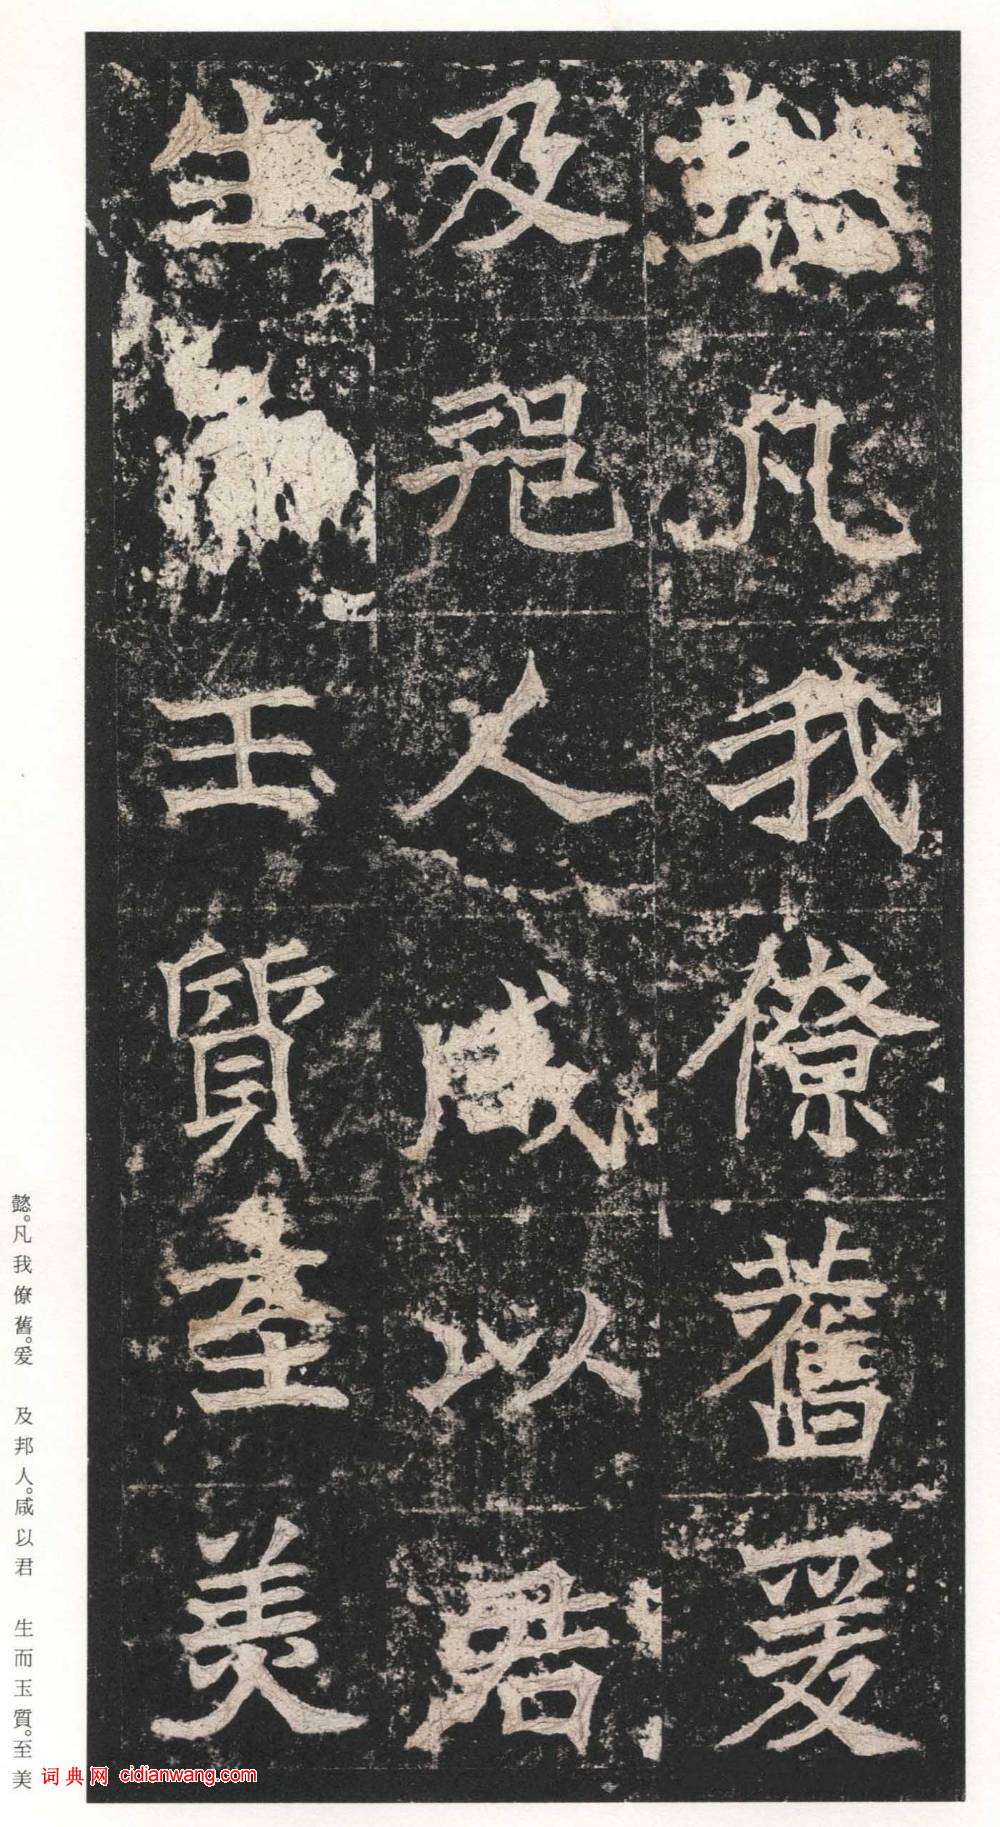 凡我僚舊爰
及邦人咸以君
生 玉質至美
懿。凡我僚舊。爰 及邦人。咸以君 生而玉質。至美
词典网 cidianwang.com